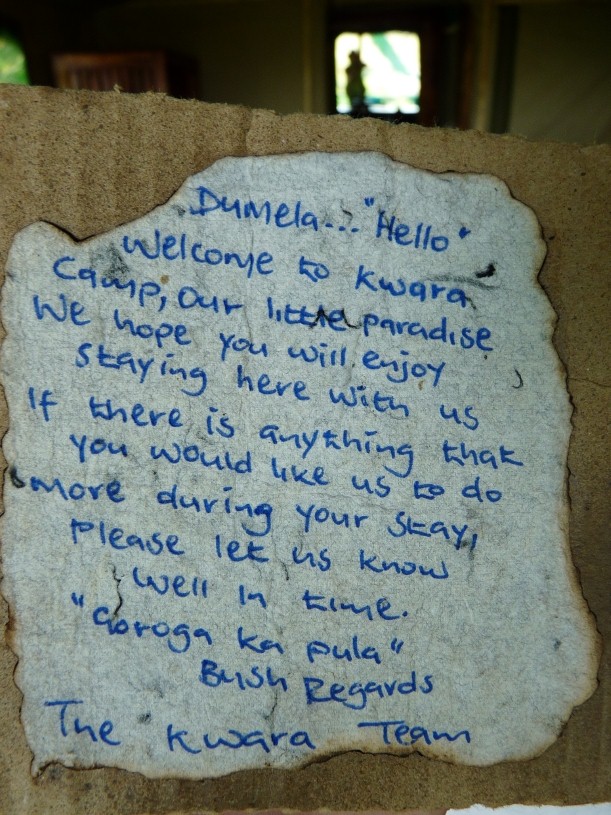 Dumela... "Hello"
Welcome to Kwara
Camp, Our little paradise
We hope you will enjoy
staying here with us
If there is anything that
you would like us to do
more during your stay,
Please let us know
Well in time.
"Goroga ka pula"
Bush Regards
The Kwara Team